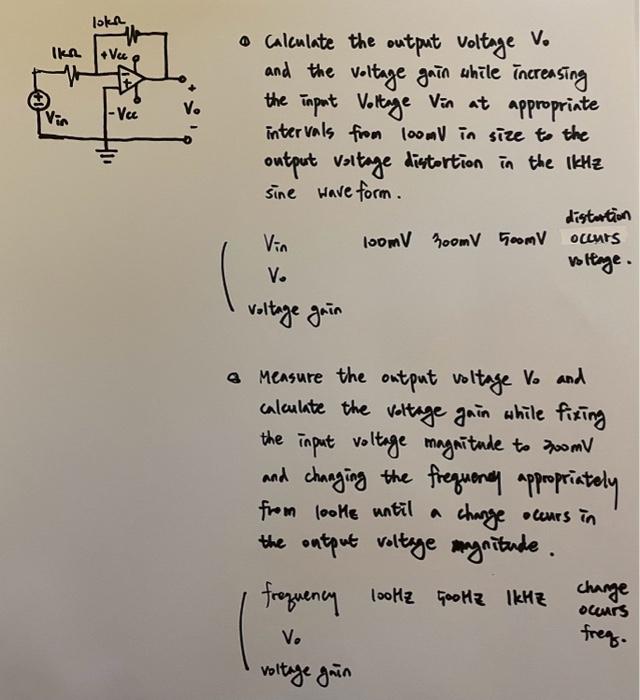 10kΩ
1kΩ
+Vcc
Vin
-Vcc
+
Vo
-
① Calculate the output voltage Vo
and the voltage gain while increasing
the input Voltage Vin at appropriate
intervals from 100mV in size to the
output voltage distortion in the 1kHz
sine wave form.
Vin 100mV 300mV 500mV distortion occurs voltage.
Vo
voltage gain
② Measure the output voltage Vo and
calculate the voltage gain while fixing
the input voltage magnitude to 300mV
and changing the frequency appropriately
from 100Hz until a change occurs in
the output voltage magnitude.
frequency 100Hz 500Hz 1kHz change occurs freq.
Vo
voltage gain